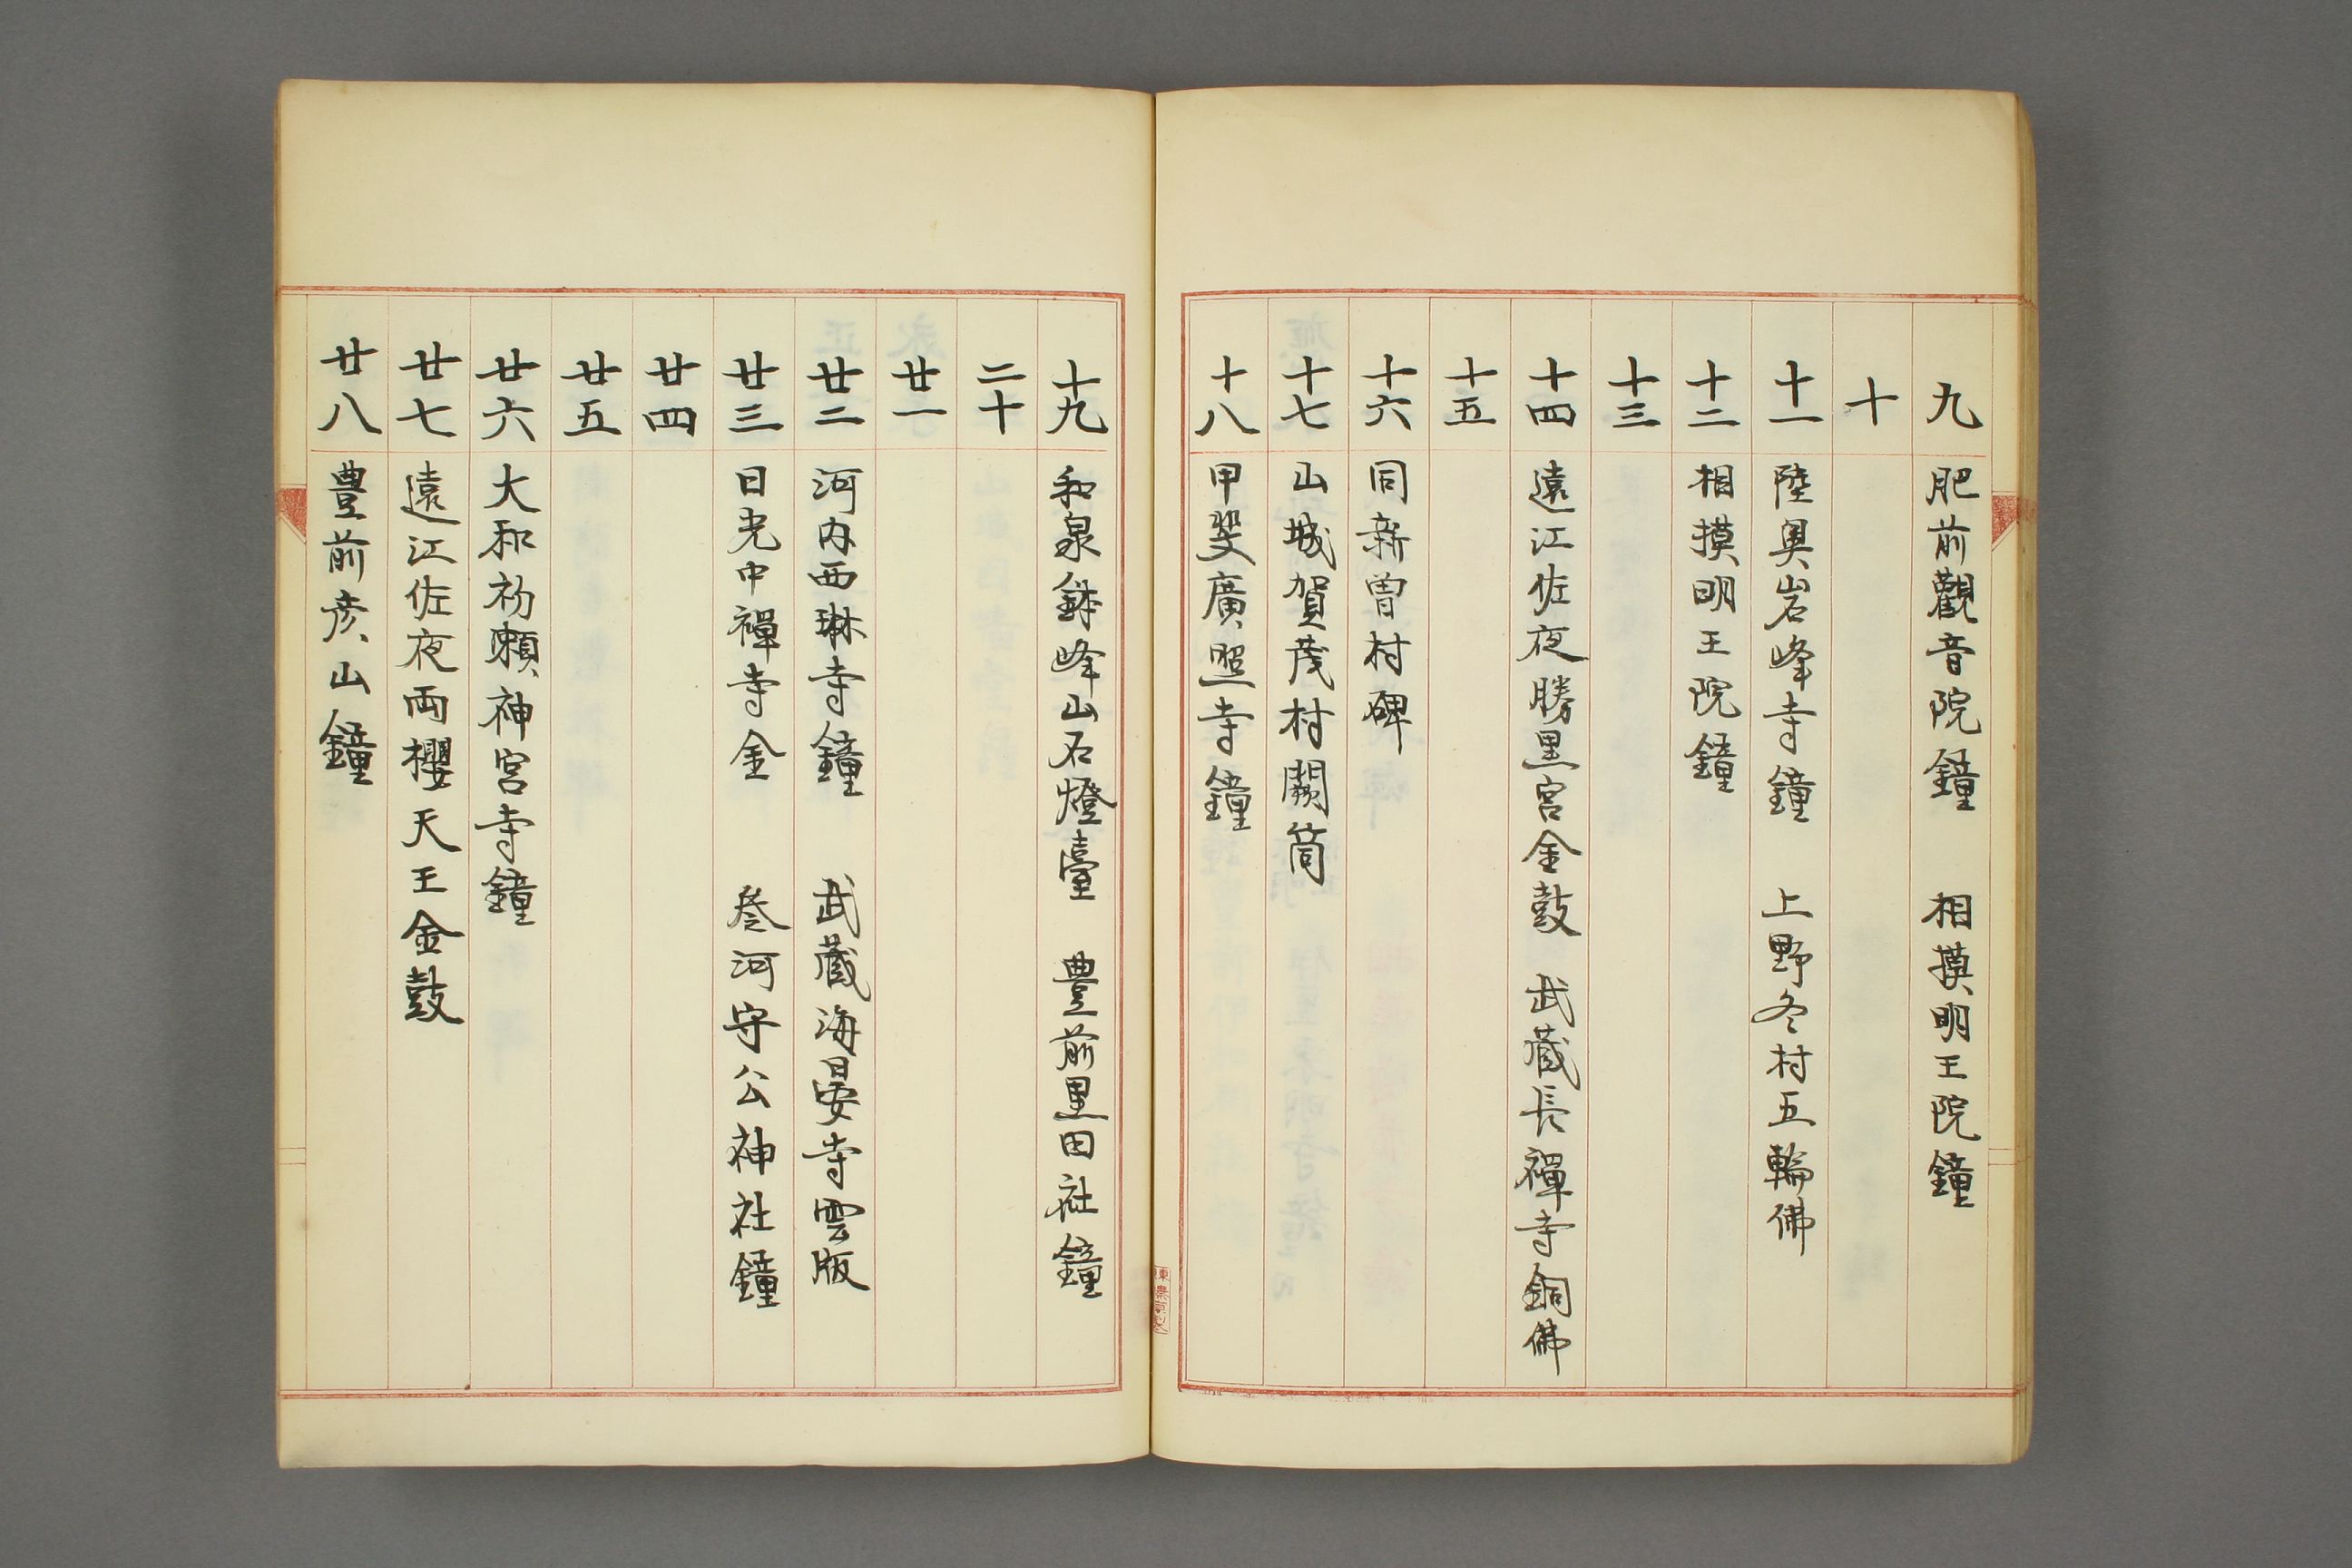 九 肥前觀音院鐘 相摸明王院鐘
十
十一 陸奥岩峰寺鐘 上野冬村五輪佛
十二 相摸明王院鐘
十三
十四 遠江佐夜勝黒宮金鼓 武藏長禪寺銅佛
十五
十六 同新曽村碑
十七 山城賀茂村閼筒
十八 甲斐廣照寺鐘
十九 和泉鉢峰山石燈臺 豊前黒田社鐘
二十
廿一
廿二 河内西琳寺鐘 武藏海晏寺雲版
廿三 日光中禪寺金 叄河守公神社鐘
廿四
廿五
廿六 大和初瀬神宮寺鐘
廿七 遠江佐夜両櫻天王金鼓
廿八 豊前彦山鐘